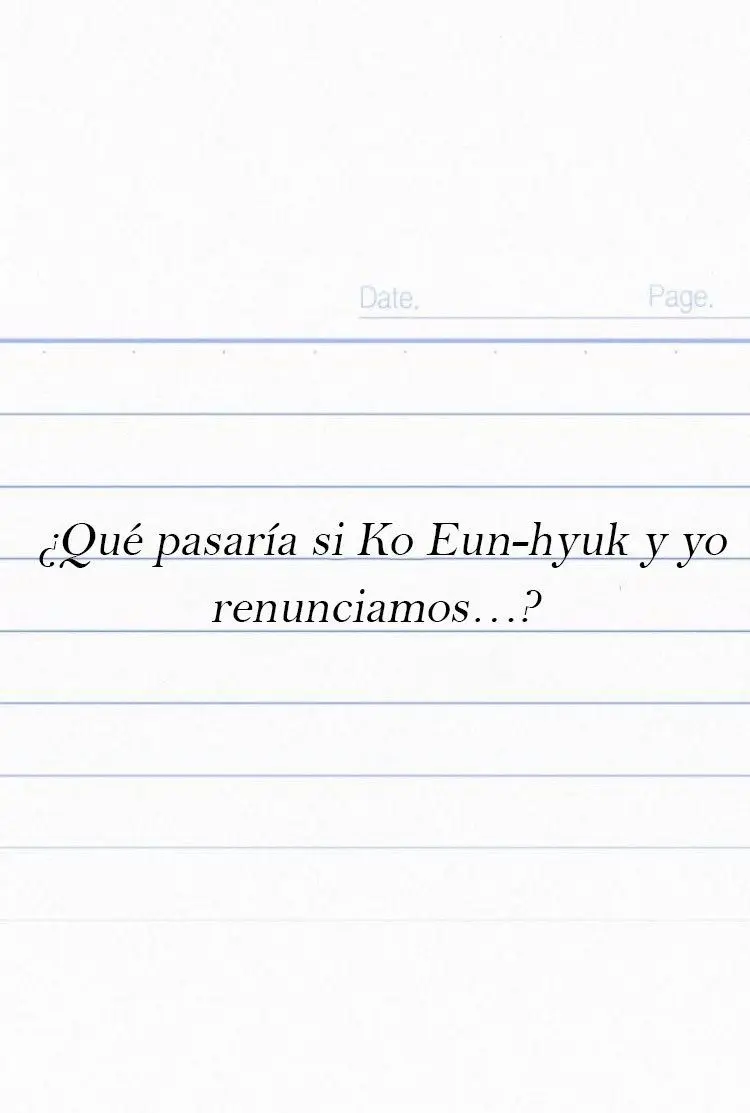 Date.
Page.
¿Qué pasaría si Ko Eun-hyuk y yo
renunciamos...?